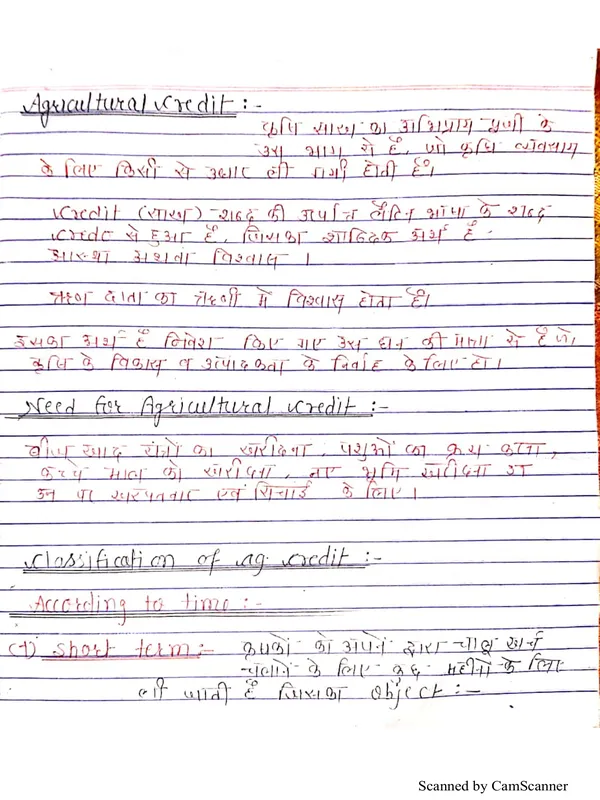 Agricultural Credit :-
कृषि साख का अभिप्राय पूंजी के
उस भाग से है, जो कृषि व्यवसाय
के लिए किसी से उधार ली गयी होती है।
Credit (साख) शब्द की उत्पत्ति लैटिन भाषा के शब्द
credo से हुआ है, जिसका शाब्दिक अर्थ है -
आस्था अथवा विश्वास ।
ऋण दाता का ऋणी में विश्वास होता है।
इसका अर्थ है निवेश किए गए उस धन की मात्रा से है जो
कृषि के विकास व उत्पादकता के निर्वाह के लिए हो।
Need for Agricultural Credit :-
बीज खाद यंत्रों का खरीदना, पशुओं का क्रय करना,
कच्चे माल को खरीदना, नए भूमि खरीदना या
उन पर खरपतवार एवं सिंचाई के लिए।
Classification of ag. credit :-
According to time :-
(1) Short term :- कृषकों को अपने द्वारा चालू खर्च
चलाने के लिए कुछ महीनों के लिए
ली जाती है जिसका object :-
Scanned by CamScanner